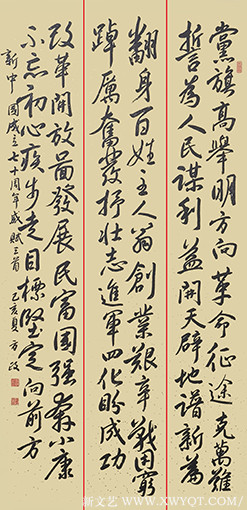 黨旗高舉明方向革命征途克萬難
誓為人民謀利益開天辟地譜新篇
翻身百姓主人翁創業艱辛戰困窮
踔厲奮發抒壯志進軍四化盼成功
改革開放圖發展民富國強奔小康
不忘初心疾步走目標堅定向前方
新中國成立七十周年感賦三首 己亥夏方政
新文艺 /WWW.XWYQT.COM/